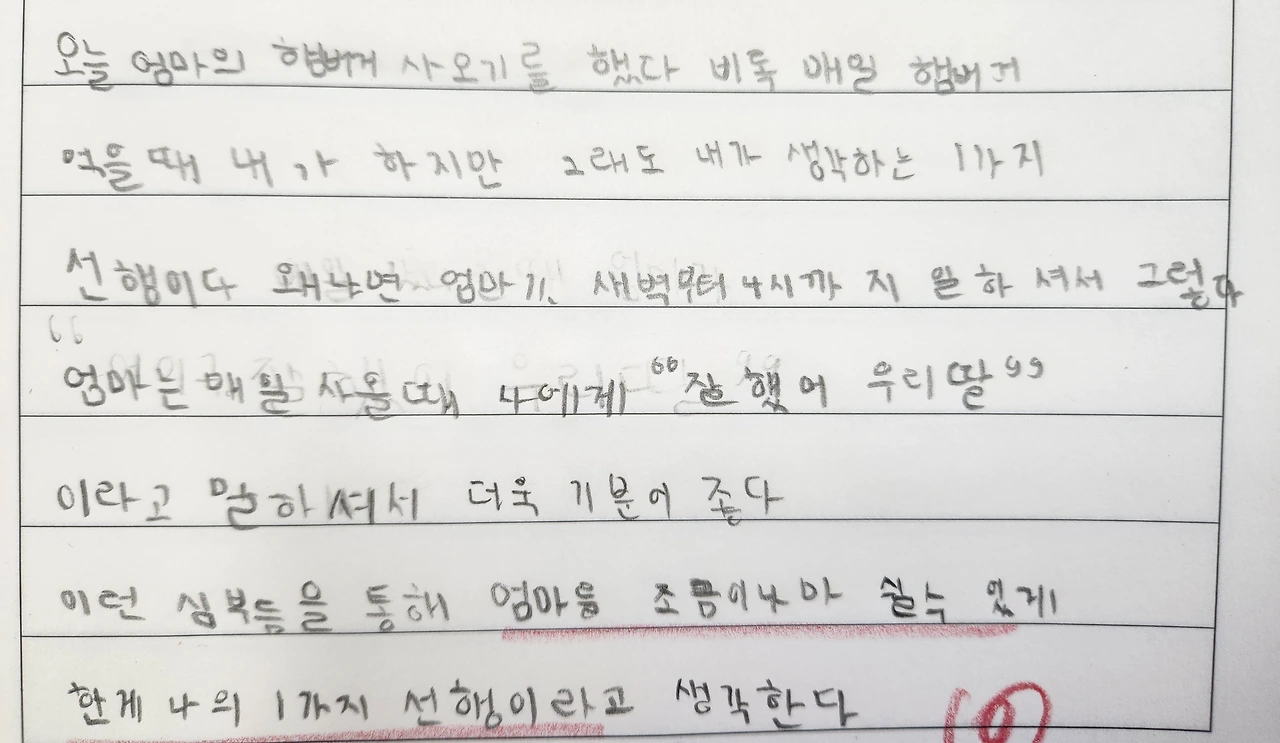 오늘 엄마의 햄버거 사오기를 했다 비록 매일 햄버거
먹을때 내가 하지만 그래도 내가 생각하는 1가지
선행이다 왜냐면 엄마가 새벽부터 4시까지 일하셔서 그렇다
엄마는 매일 사올때 나에게 “잘했어 우리딸”
이라고 말하셔서 더욱 기분이 좋다
이런 심부름을 통해 엄마를 조금이나마 쉴수 있게
한게 나의 1가지 선행이라고 생각한다